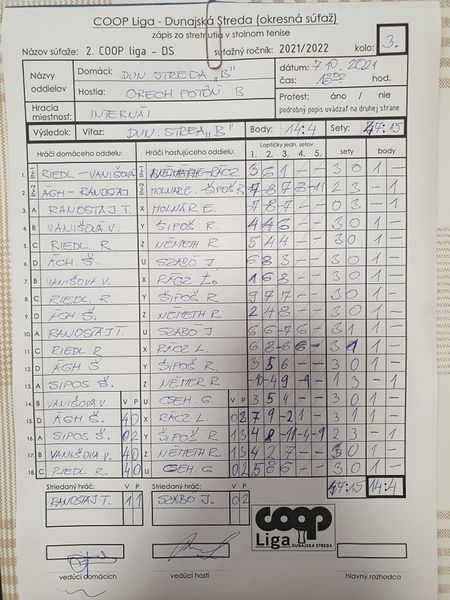 COOP Liga - Dunajská Streda (okresná súťaž)
zápis zo stretnutia v stolnom tenise
Názov súťaže: 2. COOP liga - DS súťažný ročník: 2021/2022 kolo: 3.
Názvy oddielov
Domáci: DUN. STREDA „B"
Hostia: ORECH. POTÔŇ B
dátum: 7.10.2021
čas: hod.
Hracia miestnosť: INTERNÁT
Protest: áno / nie
podrobný popis uvádzať na druhej strane
Výsledok: Víťaz: DUN. STREA „B" Body: 14:4 Sety: 47:15
Hráči domáceho oddielu: Hráči hosťujúceho oddielu: Loptičky jedn. setov sety body
1. 2. 3. 4. 5.
1. RIEDL - VANIŠOVÁ RÁCZ 3 6 1 - - 3 0 1 -
2. ÁGH - RANOSTAJ MOLNÁR E. ŠIPOŠ R 2 3 - 1
3. A RANOSTAJ T. X MOLNÁR E. 7 8 7 - - 0 3 - 1
4. B VANIŠOVÁ V. Y ŠIPOŠ R. 4 4 6 - - 3 0 1 -
5. C RIEDL R. Z NÉMETH R 5 4 4 - - 3 0 1 -
6. D ÁGH Š. U SZABÓ J. 6 8 3 - - 3 0 1 -
7. B VANIŠOVÁ V. X RÁCZ L. 1 6 8 - - 3 0 1 -
8. C RIEDL R. Y ŠIPOŠ R. 9 7 7 - - 3 0 1 -
9. D ÁGH Š. Z NÉMETH R 2 4 8 - - 3 0 1 -
10. A RANOSTAJ T. U SZABÓ J 6 6 -7 6 - 3 1 1 -
11. C RIEDL R X RÁCZ L. 6 8 -6 6 - 3 1 1 -
12. D ÁGH Š Y ŠIPOŠ R. 3 5 6 - - 3 0 1 -
13. A SIPOS Š. Z NÉMET R -10 -4 9 -9 - 1 3 - 1
V P V P
14. B VANIŠOVÁ V. U CZEH. G. 3 5 4 - - 3 0 1 -
15. D ÁGH Š. 4 0 X RÁCZ L. 0 2 7 9 -2 1 - 3 1 1 -
16. A SIPOS Š. 0 2 Y ŠIPOŠ R 1 3 4 -8 -11 4 -9 2 3 - 1
17. B VANIŠOVÁ V. 4 0 Z NÉMETH R 1 3 4 2 7 - - 3 0 1 -
18. C RIEDL R. 4 0 U CZEH. G. 0 2 5 8 6 - - 3 0 1 -
Striedaný hráč: V P Striedaný hráč: V P 47:15 14:4
RANOSTAJ T. 1 1 SZABÓ J. 0 2
COOP
Liga DUNAJSKÁ STREDA
vedúci domácich vedúci hostí hlavný rozhodca